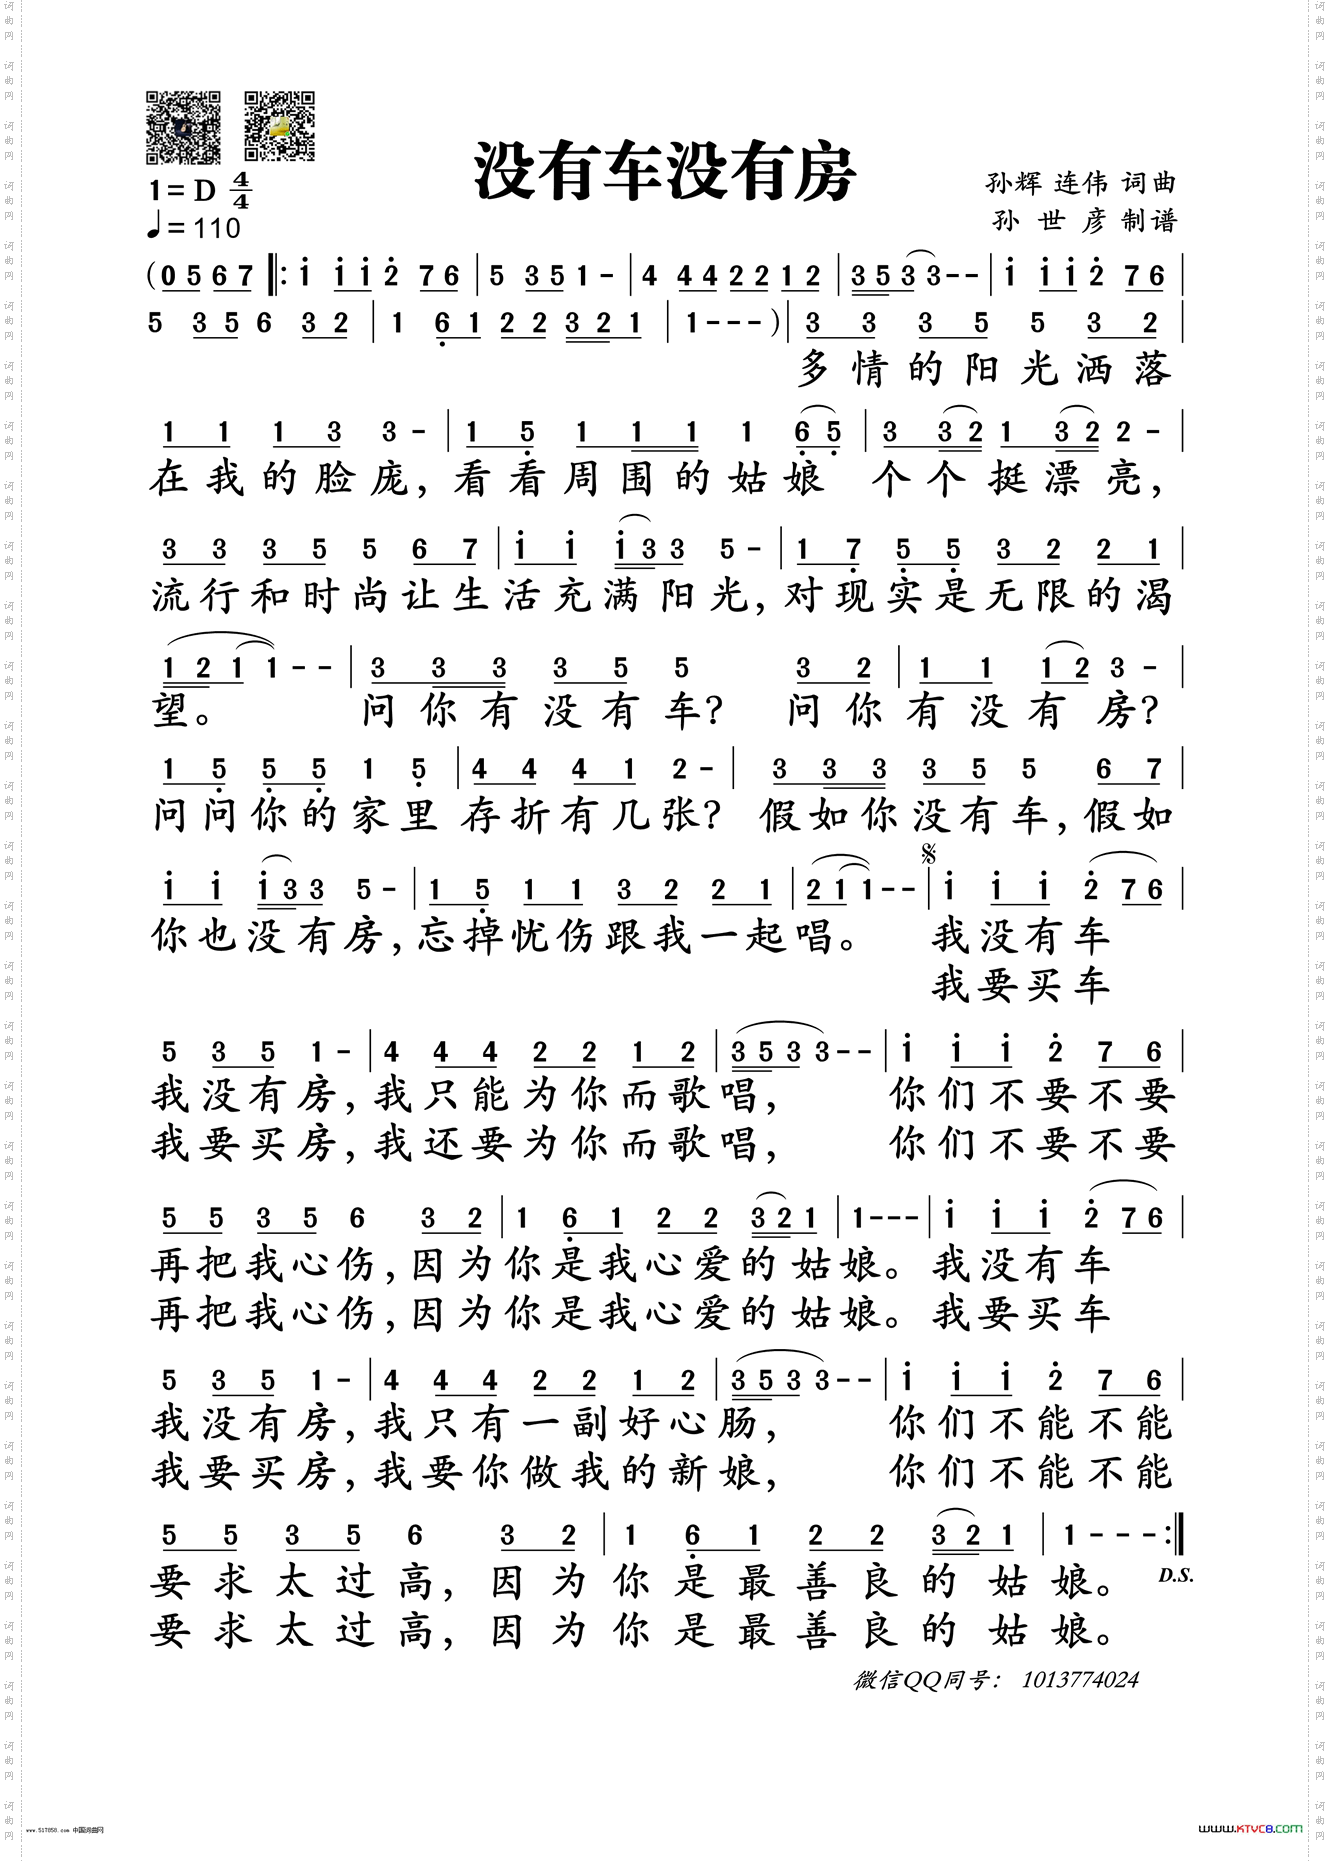 没有车没有房
1=D 4/4
孙辉 连伟 词曲
♩=110
孙 世 彦 制谱
(0 5 6 7 ‖: i i i 2 7 6 | 5 3 5 1 - | 4 4 4 2 2 1 2 | 3 5 3 3 - - | i i i 2 7 6 |
5 3 5 6 3 2 | 1 6 1 2 2 3 2 1 | 1 - - - ) | 3 3 3 5 5 3 2 |
多情的阳光洒落
1 1 1 3 3 - | 1 5 1 1 1 1 6 5 | 3 3 2 1 3 2 2 - |
在我的脸庞,看看周围的姑娘 个个挺漂亮,
3 3 3 5 5 6 7 | i i i 3 3 5 - | 1 7 5 5 3 2 2 1 |
流行和时尚让生活充满阳光,对现实是无限的渴
1 2 1 1 - - | 3 3 3 3 5 5 3 2 | 1 1 1 2 3 - |
望。 问你有没有车? 问你有没有房?
1 5 5 5 1 5 | 4 4 4 1 2 - | 3 3 3 3 5 5 6 7 |
问问你的家里存折有几张? 假如你没有车,假如
𝄋
i i i 3 3 5 - | 1 5 1 1 3 2 2 1 | 2 1 1 - - | i i i 2 7 6 |
你也没有房,忘掉忧伤跟我一起唱。 我没有车
我要买车
5 3 5 1 - | 4 4 4 2 2 1 2 | 3 5 3 3 - - | i i i 2 7 6 |
我没有房,我只能为你而歌唱, 你们不要不要
我要买房,我还要为你而歌唱, 你们不要不要
5 5 3 5 6 3 2 | 1 6 1 2 2 3 2 1 | 1 - - - | i i i 2 7 6 |
再把我心伤,因为你是我心爱的姑娘。我没有车
再把我心伤,因为你是我心爱的姑娘。我要买车
5 3 5 1 - | 4 4 4 2 2 1 2 | 3 5 3 3 - - | i i i 2 7 6 |
我没有房,我只有一副好心肠, 你们不能不能
我要买房,我要你做我的新娘, 你们不能不能
5 5 3 5 6 3 2 | 1 6 1 2 2 3 2 1 | 1 - - - :‖
要求太过高,因为你是最善良的姑娘。
D.S.
要求太过高,因为你是最善良的姑娘。
微信QQ同号: 1013774024
www.517858.com 中国词曲网
www.KTVC8.com